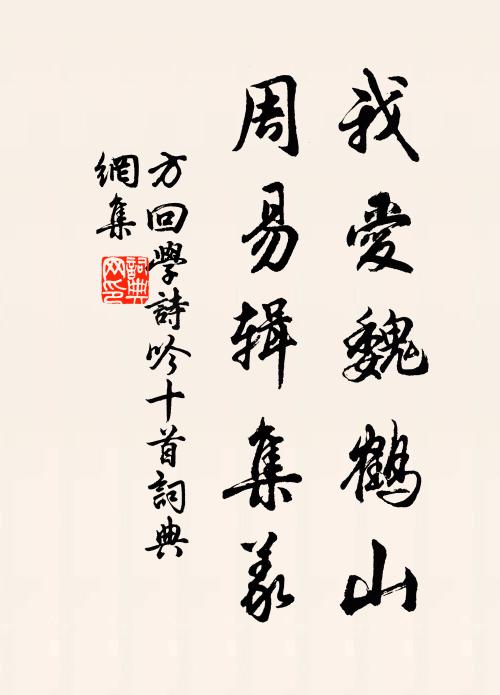 我愛魏鶴山
周易辑集義
方回學詩吟十首詞典
網集
詞典网印